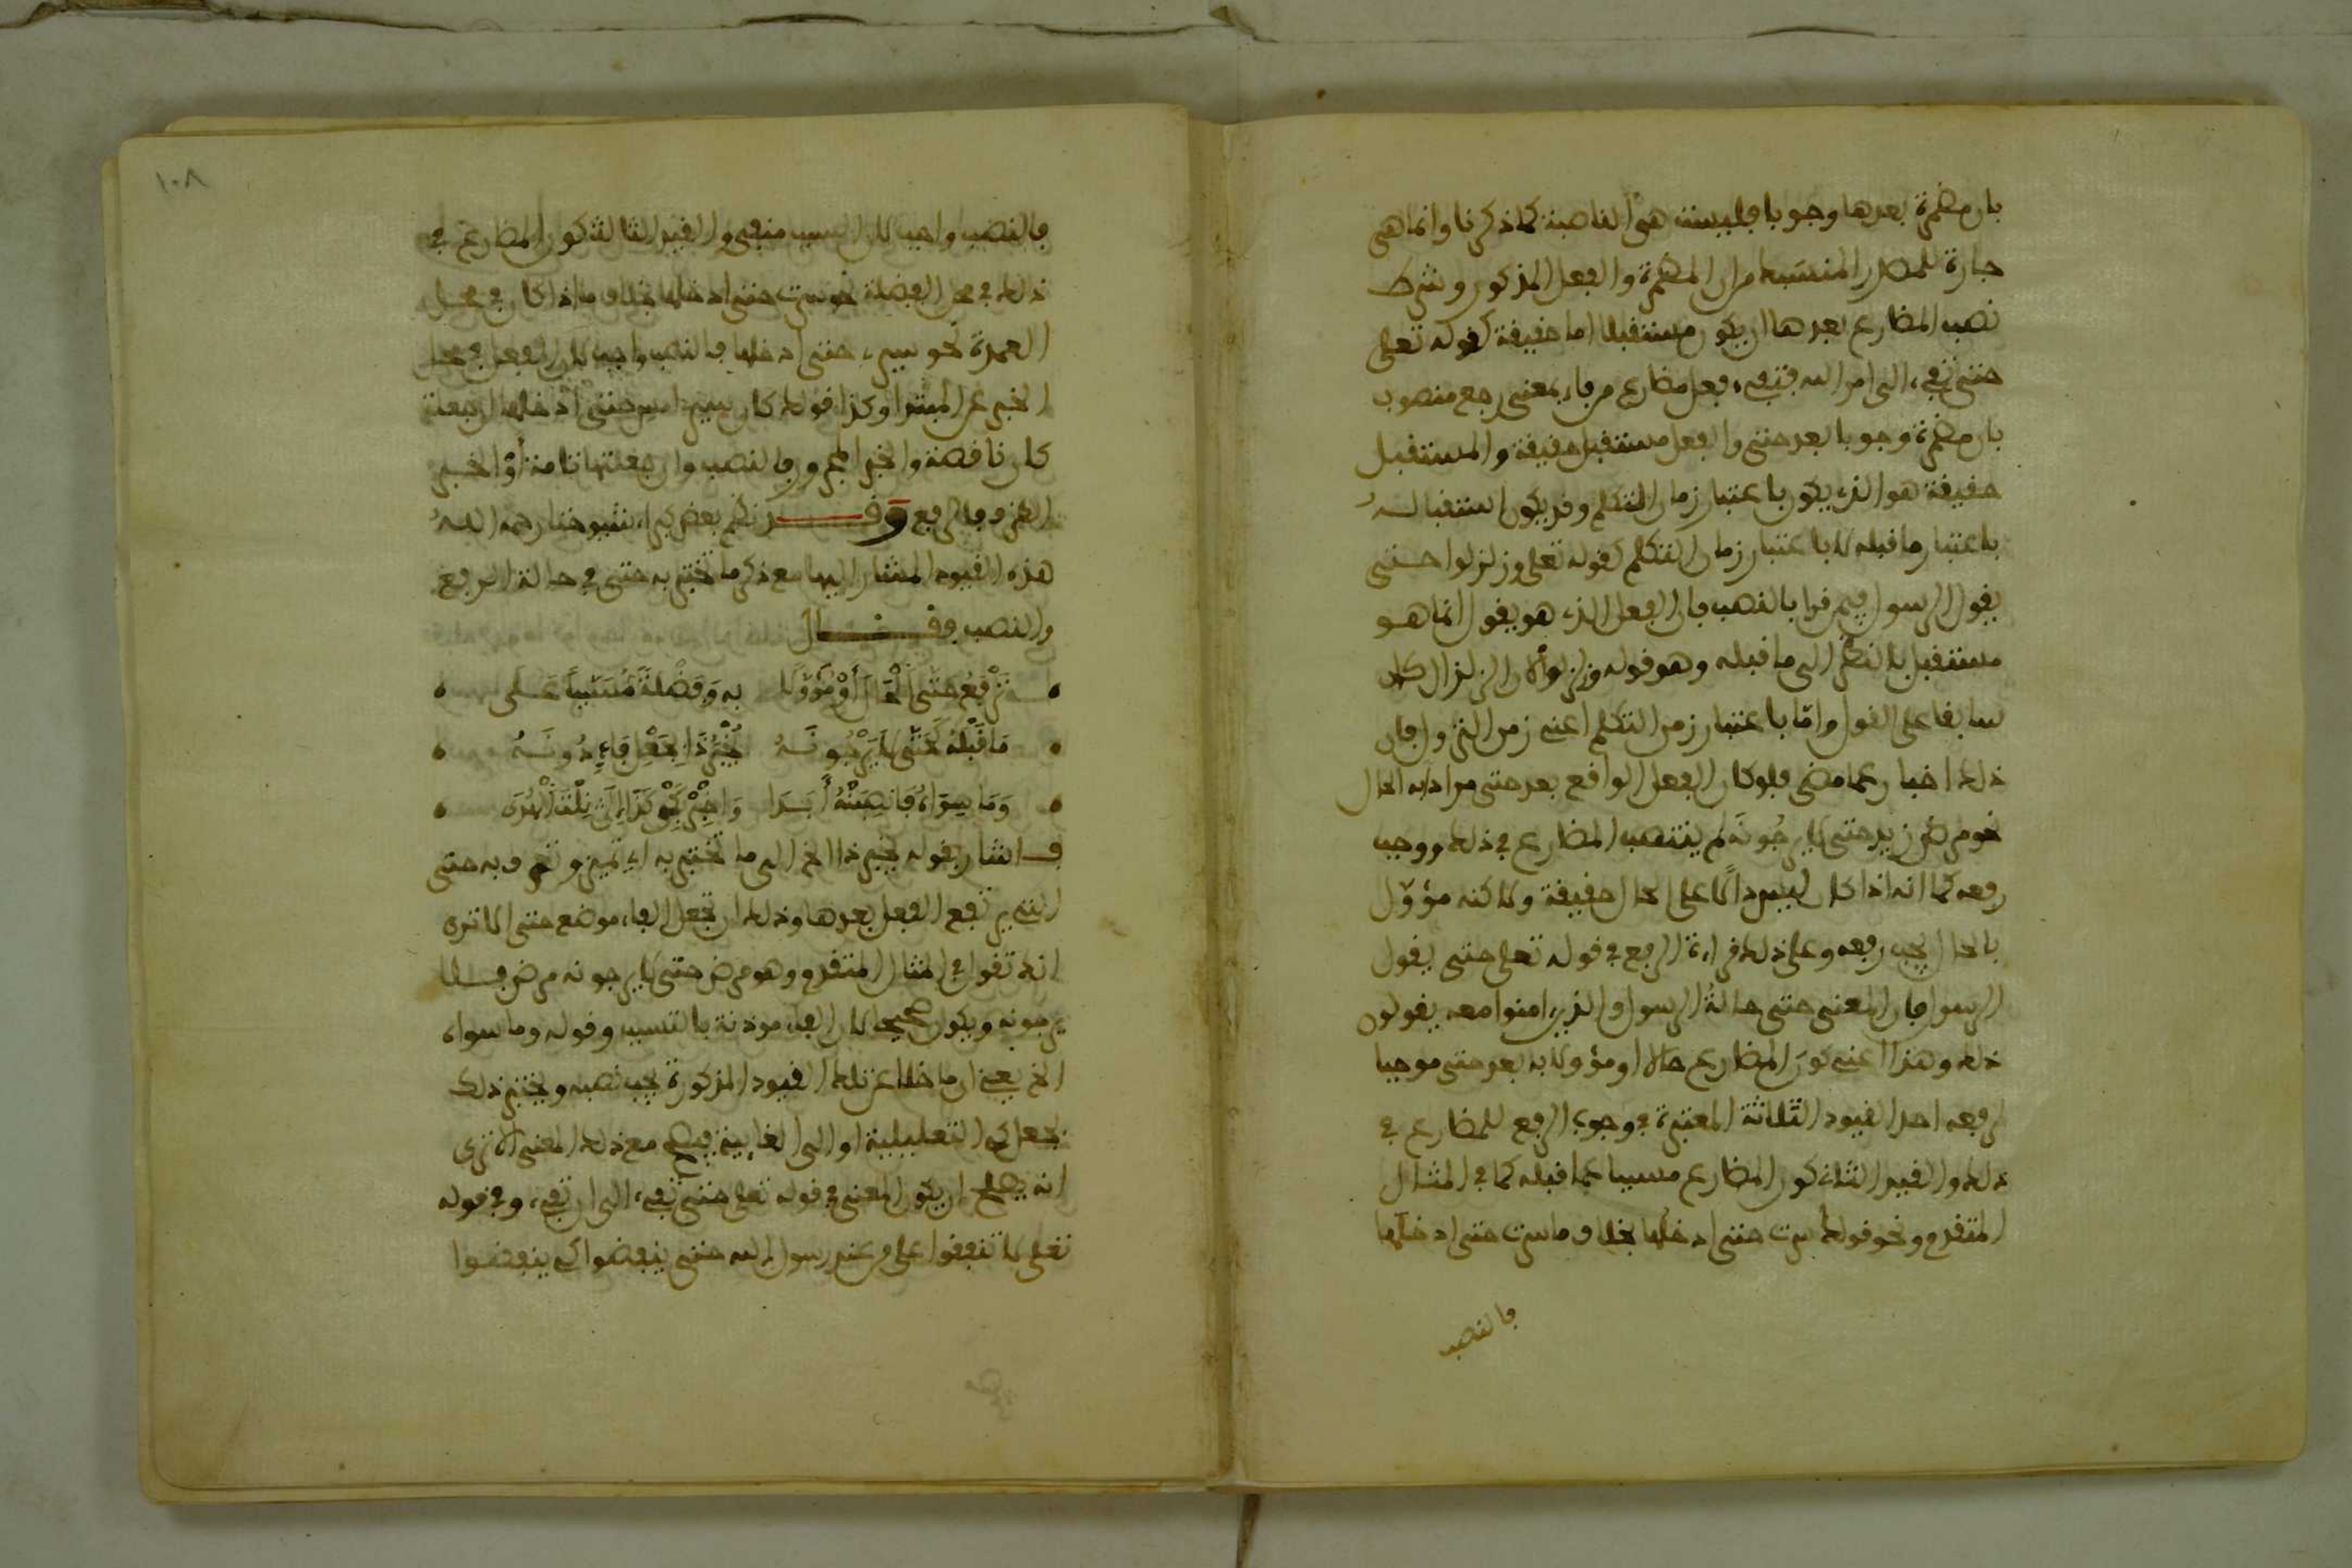 بان مضمرة بعدها وجوبا فليست هي الناصبة كما ذكرنا وانما هي
جارة للمصدر المنسبك من ان المضمرة والفعل المذكور وشرط
نصب المضارع بعدها ان يكون مستقبلا اما حقيقة كقوله تعلى
حتى تفيء الى امر الله فتفيء فعل مضارع من فاء بمعنى رجع منصوب
بان مضمرة وجوبا بعد حتى والفعل مستقبل حقيقة والمستقبل
حقيقة هو الذي يكون باعتبار زمان التكلم وقد يكون استقباله
باعتبار ما قبله لا باعتبار زمان التكلم كقوله تعلى وزلزلوا حتى
يقول الرسول فيمن قرا بالنصب فان الفعل الذي هو يقول انما هو
مستقبل بالنظر الى ما قبله وهو قوله وزلزلوا لان الزلزال كان
سابقا على القول واما باعتبار زمن التكلم اعني زمن النزول فان
ذلك اخبار عما مضى فلو كان الفعل الواقع بعد حتى مرادا به الحال
نحو مرض زيد حتى لا يرجونه لم ينتصب المضارع في ذلك ووجب
رفعه كما انه اذا كان ليس دالا على الحال حقيقة ولاكنه مؤوّل
بالحال يجب رفعه وعلى ذلك قراءة الرفع في قوله تعلى حتى يقول
الرسول فان المعنى حتى حالة الرسول والذين امنوا معه يقولون
ذلك وهذا اعني كون المضارع حالا او مؤولا به بعد حتى موجبا
لرفعه احد القيود الثلاثة المعتبرة في وجوب الرفع للمضارع في
ذلك والقيد الثاني كون المضارع مسببا عما قبله كما في المثال
المتقدم ونحو قولك سرت حتى ادخلها بخلاف ما سرت حتى ادخلها
فالنصب
فالنصب واجب لان السبب منفي والقيد الثالث كون المضارع في
ذلك في محل الفضلة نحو سرت حتى ادخلها بخلاف ما اذا كان في محل
العمدة نحو سيري حتى ادخلها فالنصب واجب لان الفعل في محل
الخبر عن المبتدا وكذا قولك كان سيري امس حتى ادخلها ان جعلت
كان ناقصة والخبر المجرور فالنصب وان جعلتها تامة أو الخبر
الظرف فالرفع وقد نظم بعض كبراء شيوخنا رحمه الله
هذه القيود المشار اليها مع ذكر ما تختبر به حتى في حالة الرفع
والنصب فقال
تَرْفَعُ حتى الْحَالَ أوْ مُؤَوَّلا به وَفَضْلَةً مُسَبَّباً عَلَى
مَا قَبْلَهُ كَحَتَّى لا يَرْجُونَهُ يُخْبَرُ ذَا بِجَعْلِ فَاءٍ دُونَهُ
وَمَا سِوَاهُ فَانْصِبَنْهُ أَبَدا وَاخْبُرْ بِكَيْ كَذَا إلَى نِلْتَ الْهُدَى
فاشار بقوله يخبر ذا الخ الى ما تختبر به اي تميز وتعرف به حتى
التي يرتفع الفعل بعدها وذلك ان تجعل الفاء موضع حتى الا ترى
انك تقول في المثال المتقدم وهو مرض حتى لا يرجونه مرض فلا
يرجونه ويكون صحيحا لان الفاء موذنة بالتسبب وقوله وما سواه
الخ يعني ان ما خلا عن تلك القيود المذكورة يجب نصبه ويختبر ذلك
بجعل كي التعليلية او الى الغايية فيصح مع ذلك المعنى الا ترى
انه يصلح ان يكون المعنى في قوله تعلى حتى تفيء الى ان تفيء وفي قوله
تعلى لا تنفقوا على من عند رسول الله حتى ينفضوا كي ينفضوا
١٠٨